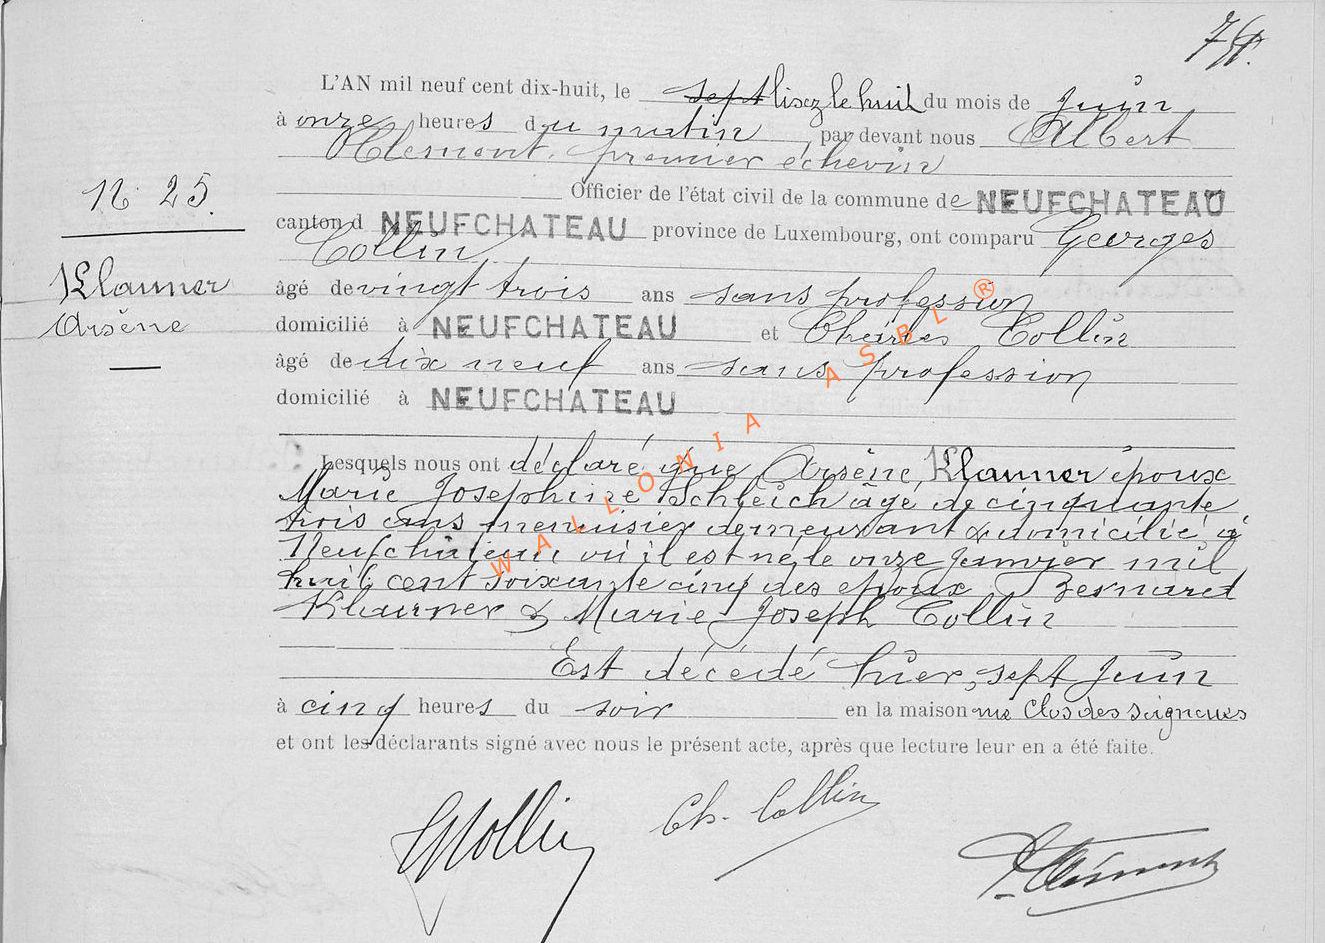 L'AN mil neuf cent dix-huit, le sept lisez le huit du mois de Juin
à onze heures du matin, par devant nous Albert
Clement, premier échevin
Officier de l'état civil de la commune de NEUFCHATEAU
N° 25.
canton d NEUFCHATEAU province de Luxembourg, ont comparu Georges
Collin
Klauner
Arsène
âgé de vingt trois ans sans profession
domicilié à NEUFCHATEAU et Charles Collin
âgé de dix neuf ans sans profession
domicilié à NEUFCHATEAU
Lesquels nous ont déclaré que Arsène Klauner époux
Marie Josephine Schleich âgé de cinquante
trois ans menuisier demeurant & domicilié à
Neufchâteau où il est né le onze Janvier mil
huit cent soixante cinq des époux Bernard
Klauner & Marie Joseph Collin
Est décédé hier, sept Juin
à cinq heures du soir en la maison rue Clos des Seigneurs
et ont les déclarants signé avec nous le présent acte, après que lecture leur en a été faite.
GCollin
Ch. Collin
Clément
WALLONIA ASBL ®